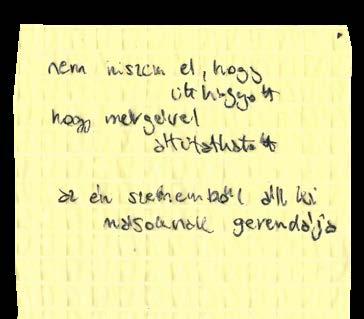 nem hiszem el, hogy
itt hagyott
hogy mérgeivel
átitathatott

az én szememből áll ki
másoknak gerendája